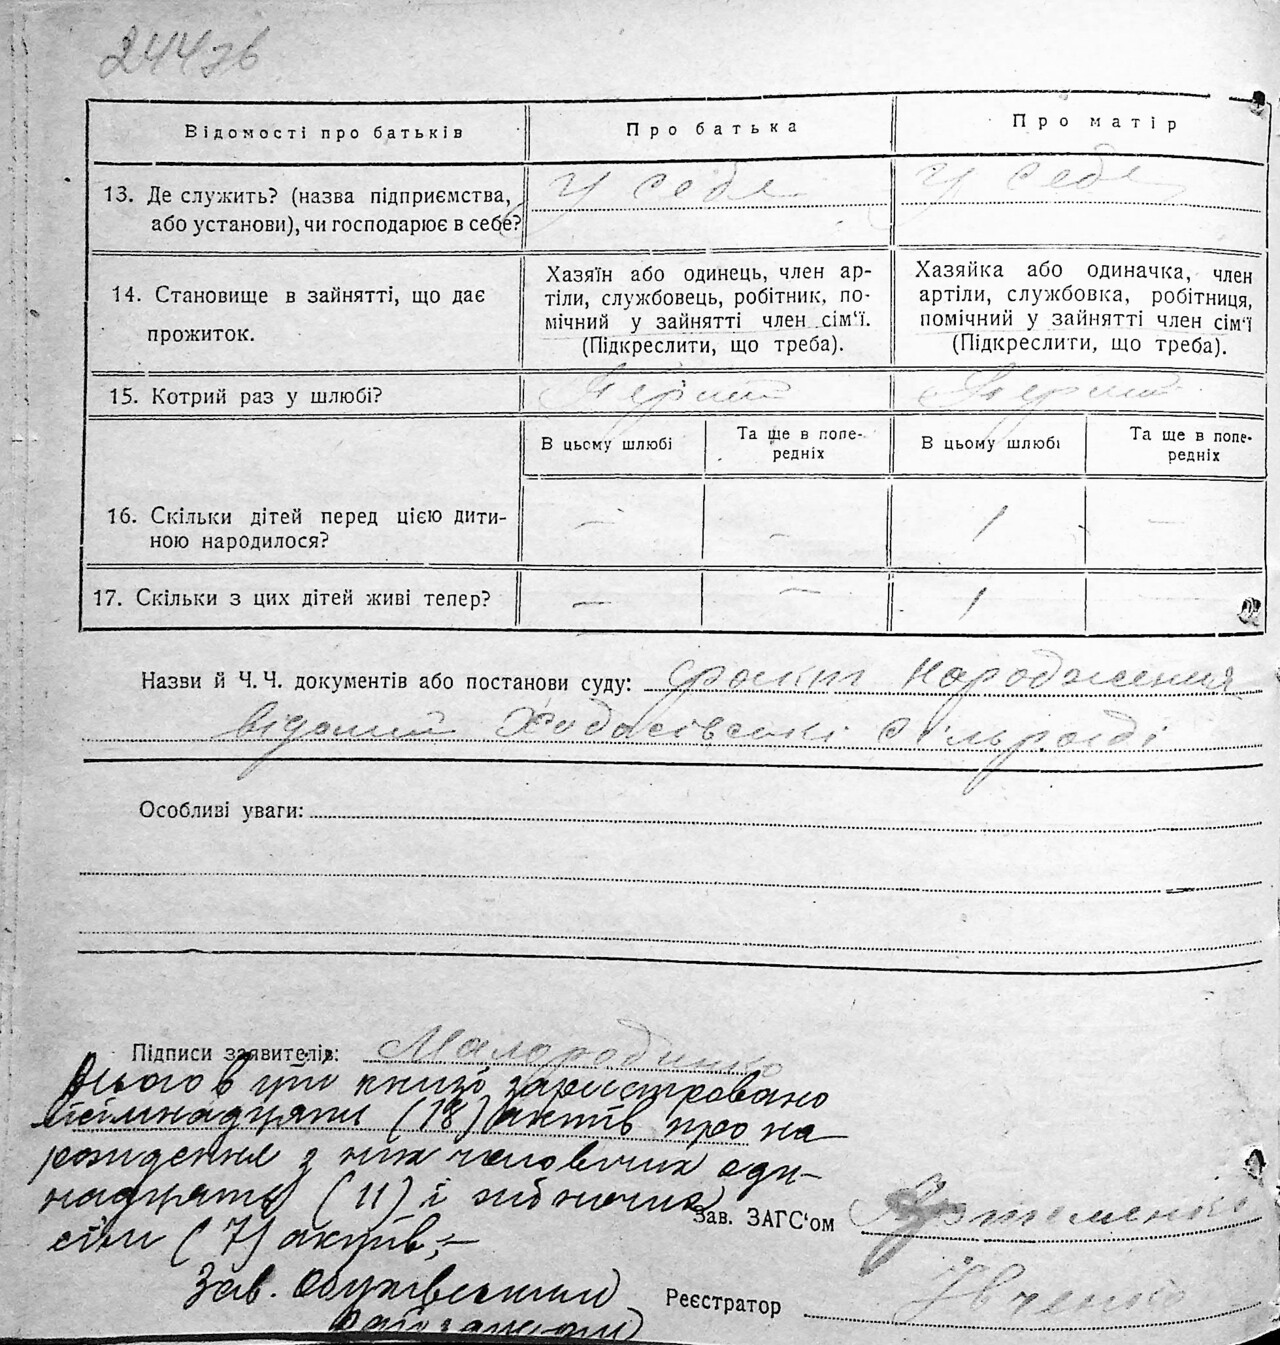 244зв
Відомості про батьків
Про батька
Про матір
13. Де служить? (назва підприємства,
або установи), чи господарює в себе?
У себе
У себе
14. Становище в зайнятті, що дає
прожиток.
Хазяїн або одинець, член ар-
тіли, службовець, робітник, по-
мічний у зайнятті член сім'ї.
(Підкреслити, що треба).
Хазяйка або одиначка, член
артіли, службовка, робітниця,
помічний у зайнятті член сім'ї
(Підкреслити, що треба).
15. Котрий раз у шлюбі?
Перший
Перший
В цьому шлюбі
Та ще в попе-
редніх
В цьому шлюбі
Та ще в попе-
редніх
16. Скільки дітей перед цією дити-
ною народилося?
–
–
1
–
17. Скільки з цих дітей живі тепер?
–
–
1
–
Назви й Ч. Ч. документів або постанови суду: факт народження
відомий Ходосівські сільраді
Особливі уваги:
Підписи заявителів: Малородченко
Всього в ций книзі зареєстровано
вісімнадцять (18) актів про на-
родження з них чоловічих оди-
надцять (11) і жіночих
сім (7) актів,–
Зав. ЗАГС'ом Артеменко
Зав. Обухівським
Реєстратор Івченко